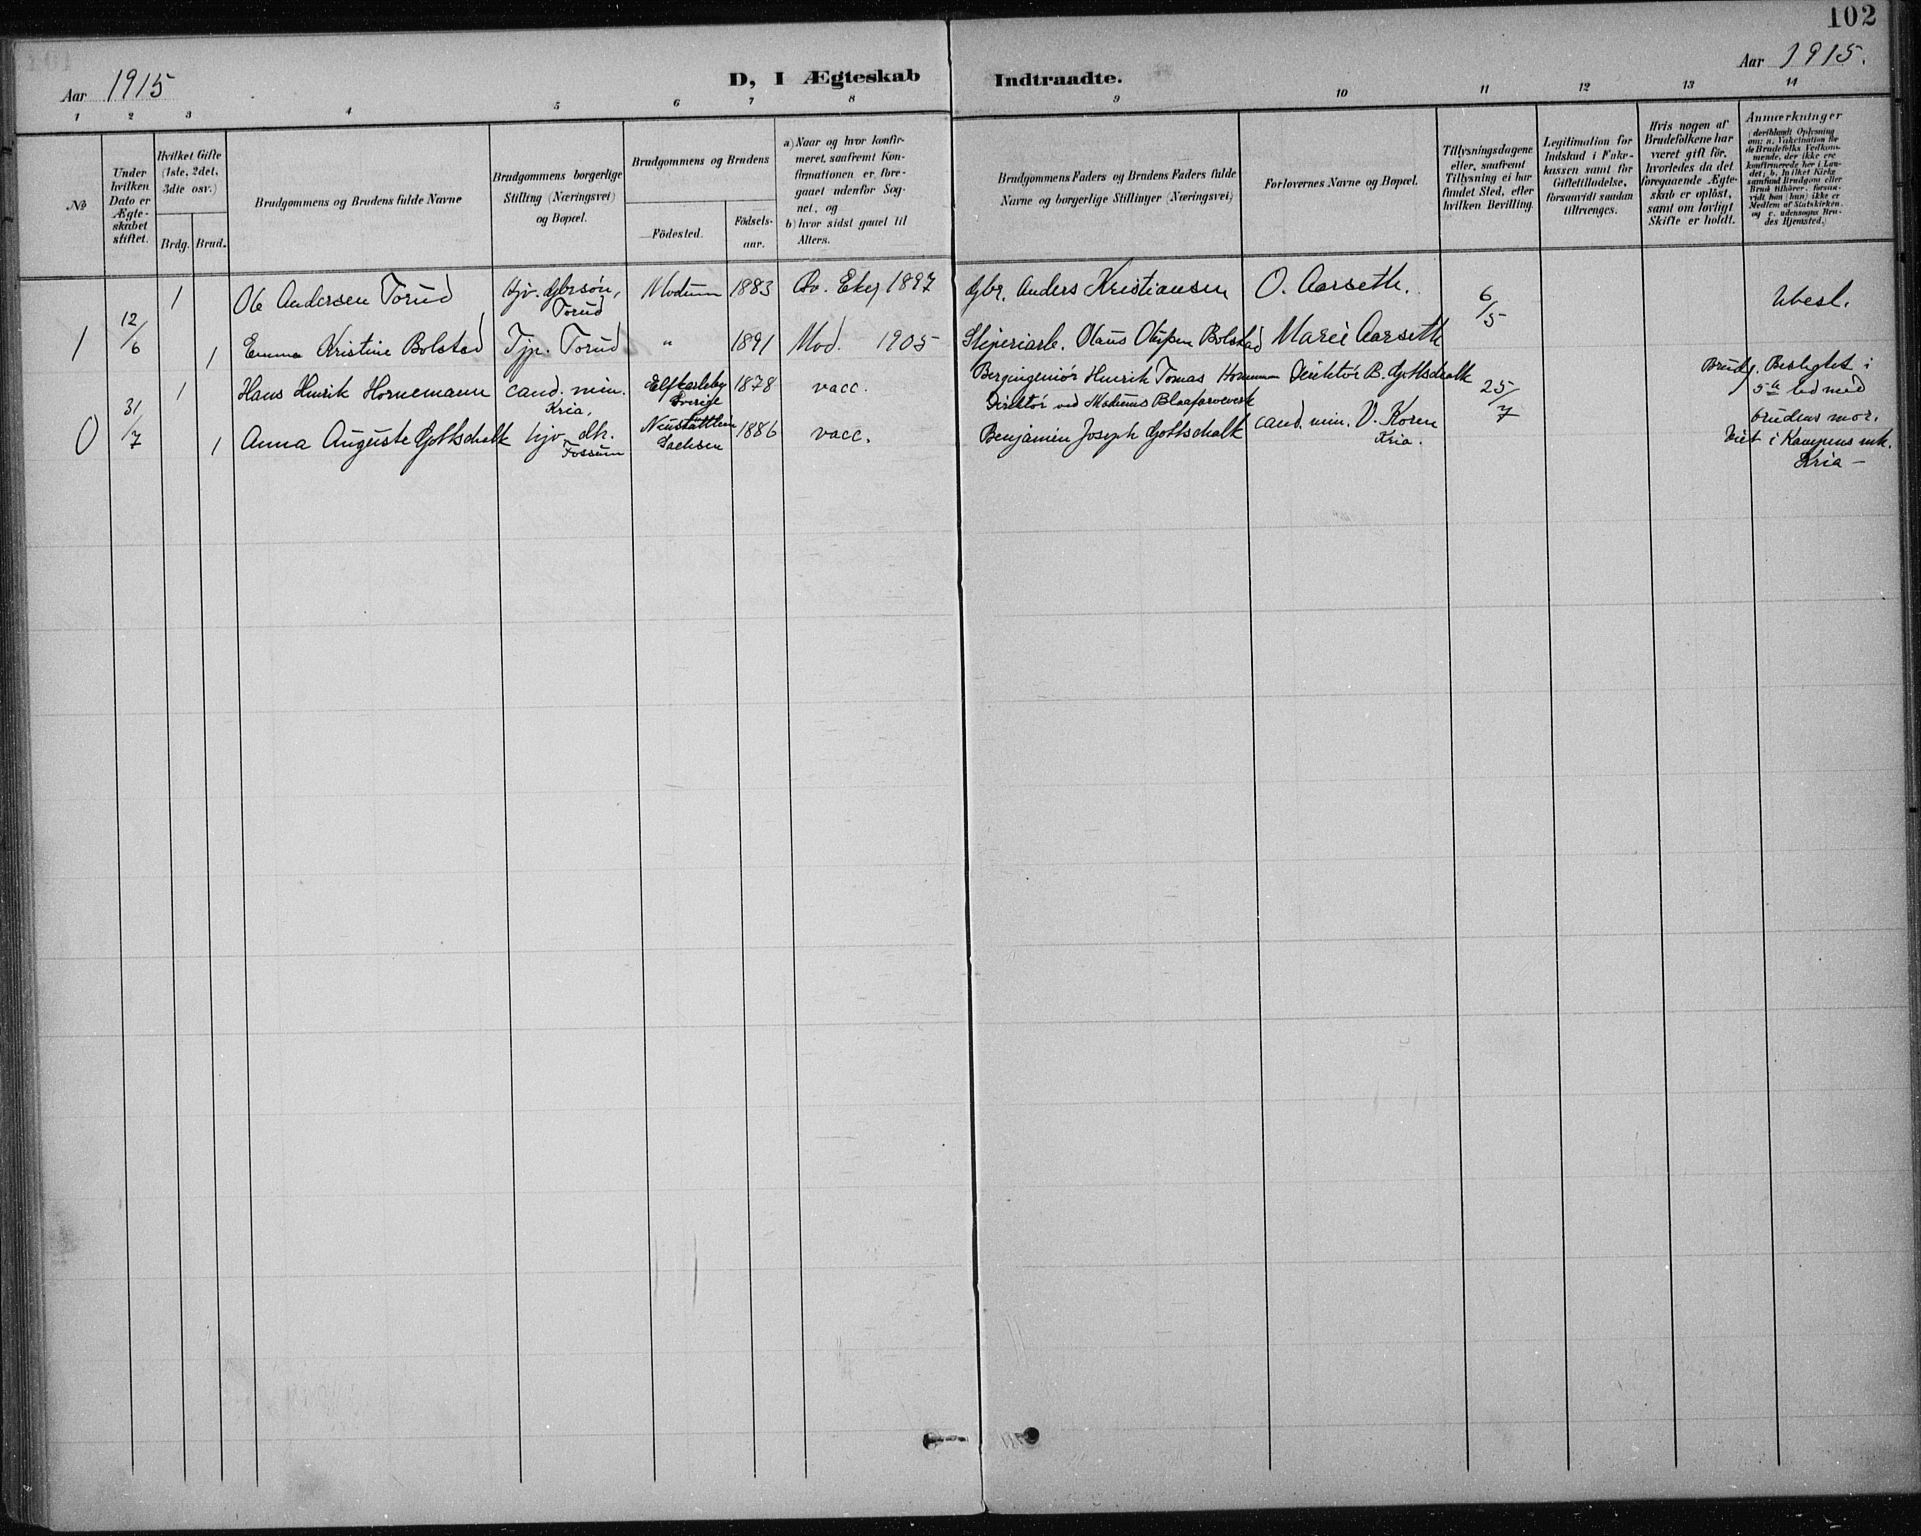 102
Aar 1915
D, I Ægteskab Indtraadte.
Aar 1915.
1 2 3 4 5 6 7 8 9 10 11 12 13 14
№
Under
hvilken
Dato er
Ægte-
skabet
stiftet.
Hvilket Gifte
(1ste, 2det,
3die osv.)
Brdg. Brud.
Brudgommens og Brudens fulde Navne
Brudgommens borgerlige
Stilling (Næringsvei)
og Bopæl.
Brudgommens og Brudens
Födested.
Födsels-
aar.
a) Naar og hvor konfir-
meret, saafremt Kon-
firmationen er fore-
gaaet udenfor Sog-
net, og
b) hvor sidst gaaet til
Alters.
Brudgommens Faders og Brudens Faders fulde
Navne og borgerlige Stillinger (Næringsvei)
Forlovernes Navne og Bopæl.
Tillysningsdagene
eller, saafremt
Tillysning ei har
fundet Sted, efter
hvilken Bevilling.
Legitimation for
Indskud i Enke-
kassen samt for
Giftetilladelse,
forsaavidt saadan
tiltrænges.
Hvis nogen af
Brudefolkene har
været gift för,
hvorledes da det
foregaaende Ægte-
skab er oplöst,
samt om lovligt
Skifte er holdt.
Anmærkninger
(deriblandt Oplysning
om: a. Vakcination for
de Brudefolks Vedkom-
mende, der ikke ere
konfirmerede her i Lan-
det; b. hvilket Kirke-
samfund Brudgom eller
Brud tilhörer, forsaa-
vidt han (hun) ikke er
Medlem af Statskirken,
og c. udensogns Bru-
des Hjemsted.)
1 12/6 1 Ole Andersen Torud hjv. gbrsøn, Torud Modum 1883 Øv. Eker 1897 gbr. Anders Kristiansen O. Aarseth. 6/5 Ubesl.
1 Emma Kristine Bolstad Tjp. Torud " 1891 Mod. 1905 Sliperiarb. Olaus Olufsen Bolstad Marie Aarseth
0 31/7 1 Hans Henrik Hornemann cand. min. Kria. Elfkarleby Sverige 1878 vacc. Bergingeniør Henrik Tomas Direktør B. Gottschalk 25/7 Brudg. Beslegtet i
5te led med
brudens mor.
1 Anna Auguste Gottschalk hjv. dtr. Fossum Sachsen 1886 vacc. Direktør ved Modums Blaafarveverk
Benjamin Joseph Gottschalk cand. min. V. Koren Kria.
Viet i Kampens mk.
Kria –